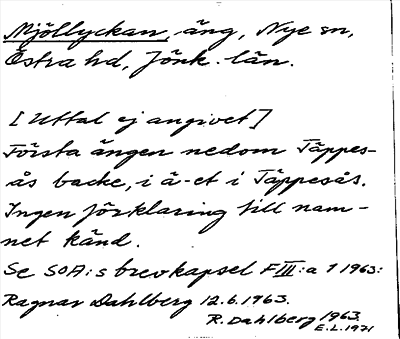 Mjöllyckan, äng, Nye sn,
Östra hd, Jönk. län.
[Uttal ej angivet]
Första ängen nedom Täppes-
ås backe, i ä-et i Täppesås.
Ingen förklaring till nam-
net känd.
Se SOA:s brevkapsel F III:a 1 1963:
Ragnar Dahlberg 12.6.1963.
R. Dahlberg 1963.
E.L. 1971